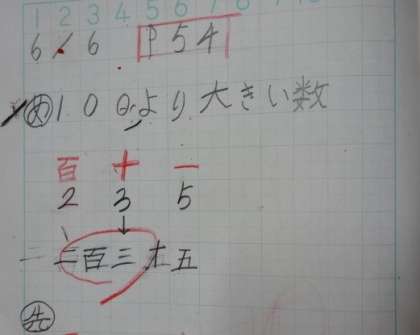 1 2 3 4 5 6 7 8
6/6 P54
め 100より大きい数
百十一
2 3 5
↓
二百三十五
先